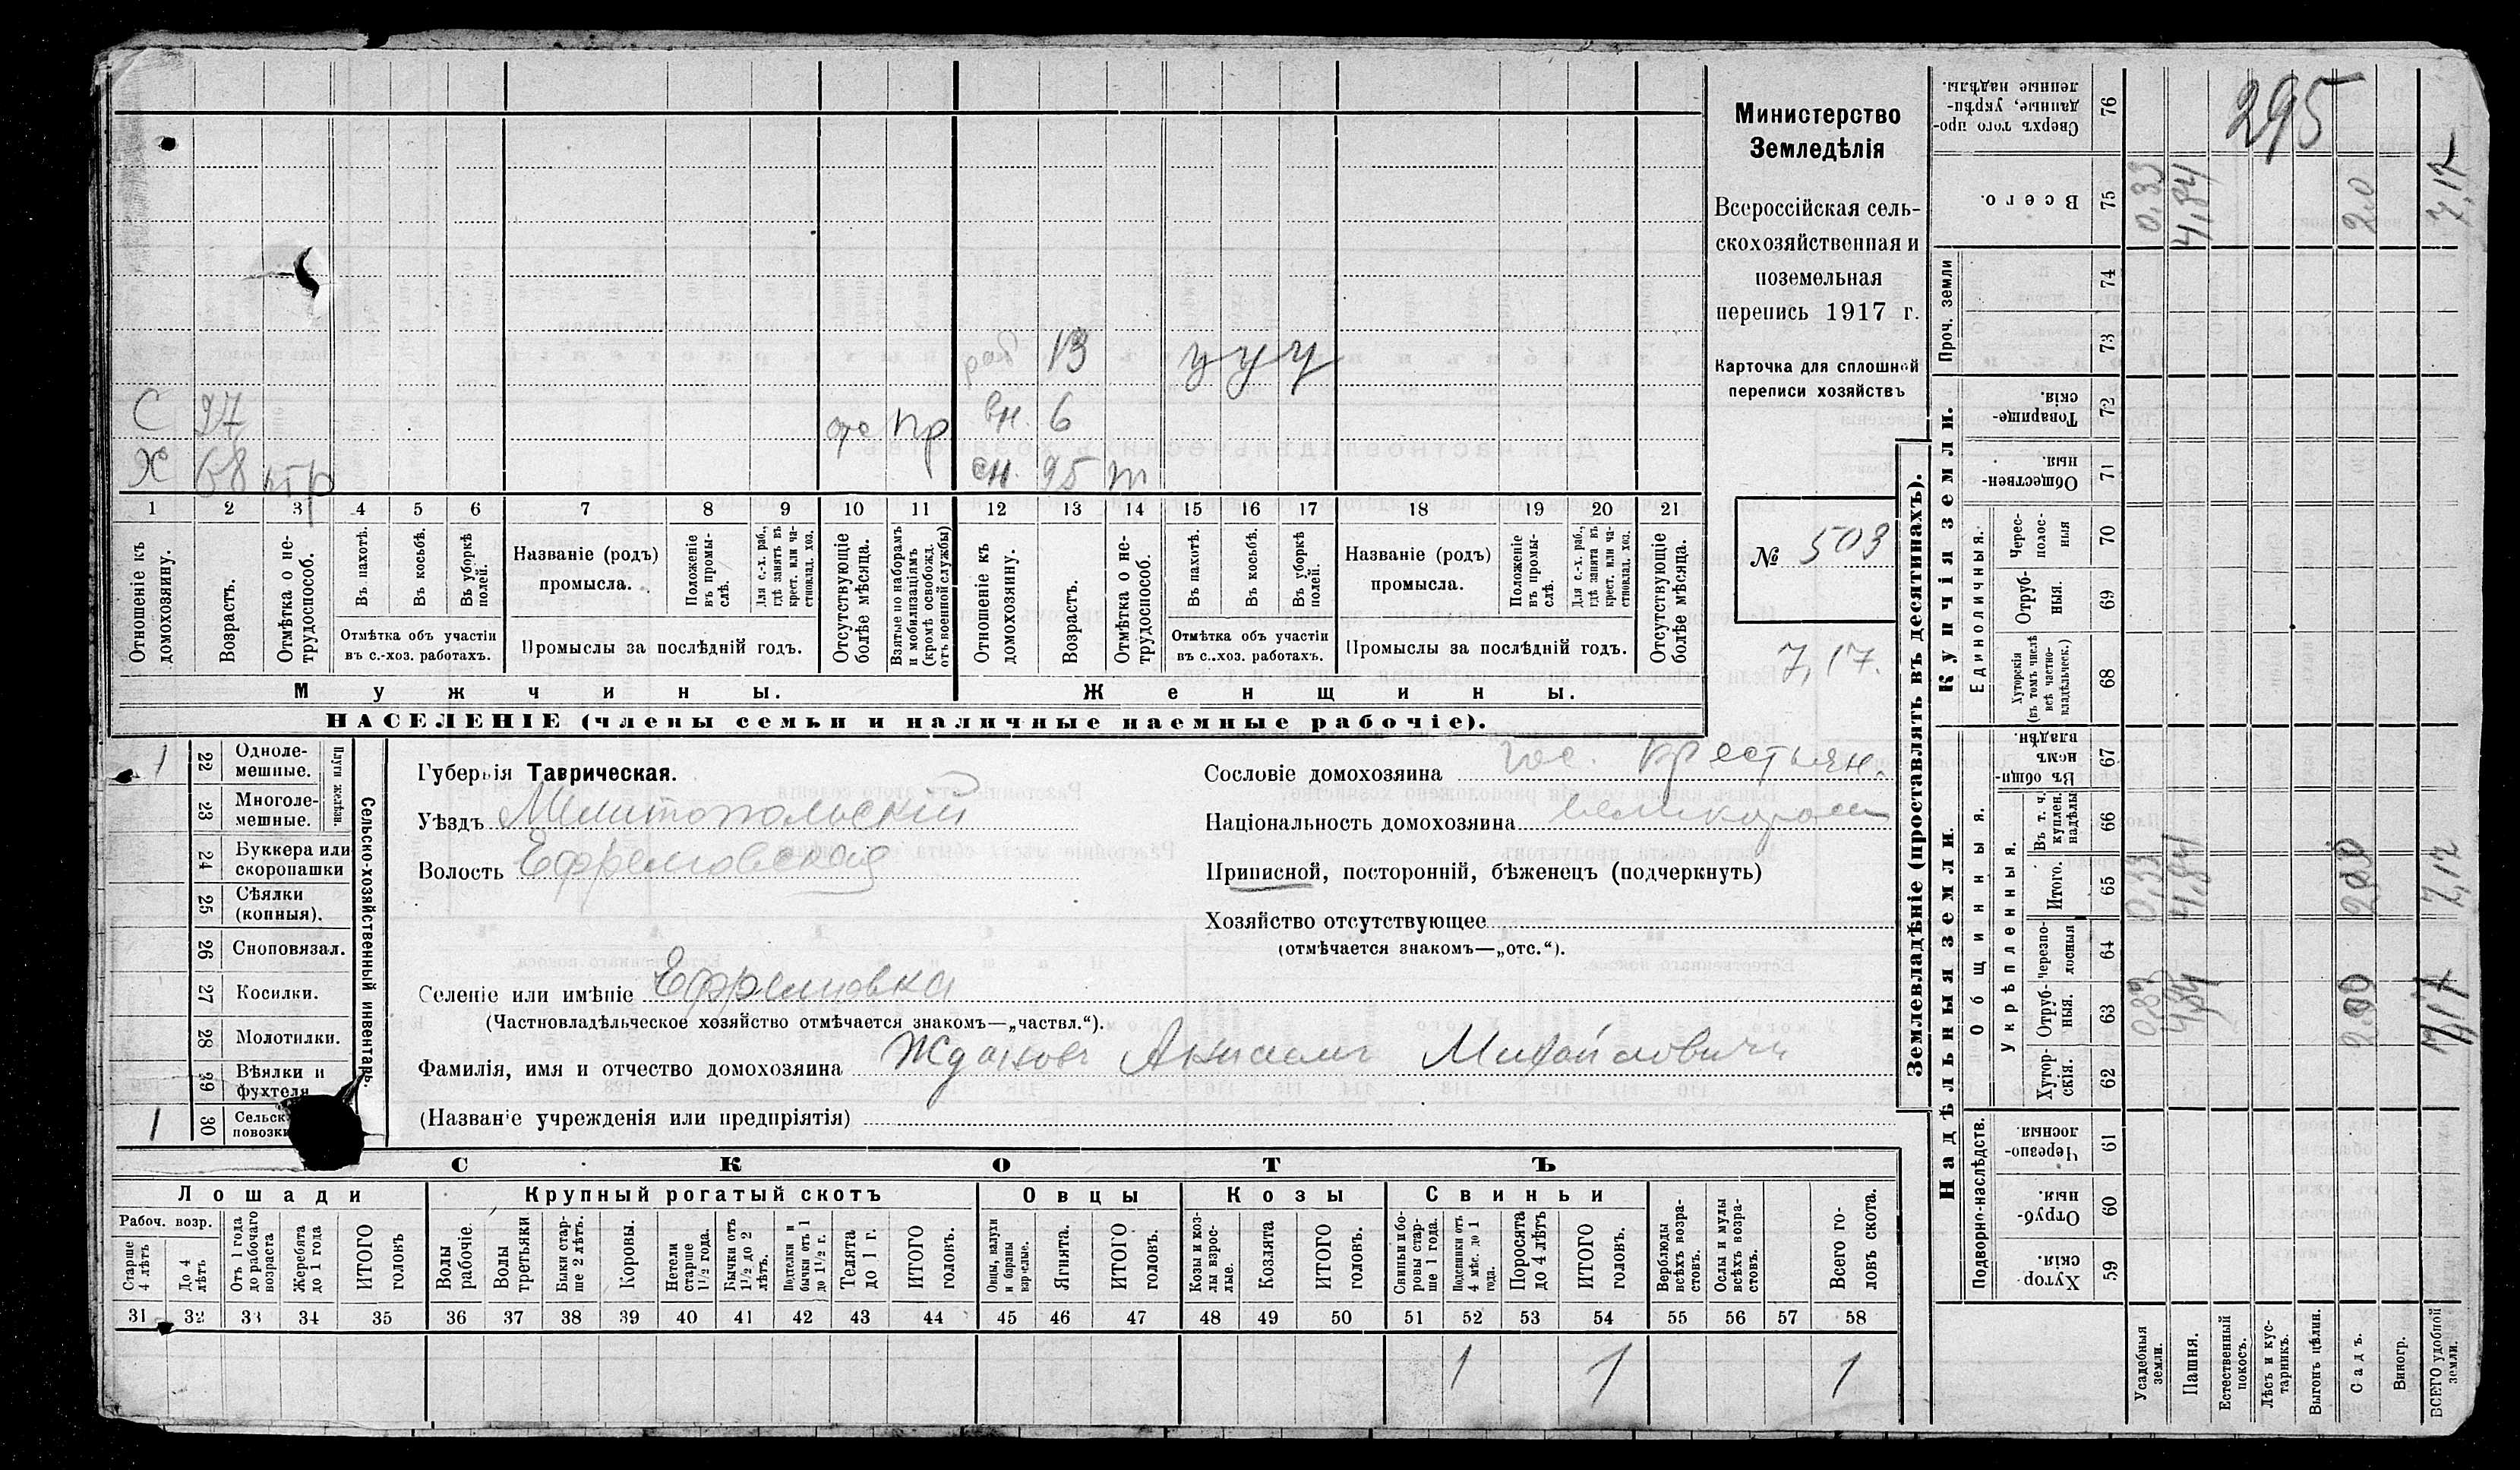 Министерство
Земледѣлія
Всероссійская сель-
скохозяйственная и
поземельная
перепись 1917 г.
Карточка для сплошной
переписи хозяйствъ
№ 503
7,17.
295
13 у у у
С 27 отс пр вн. 6
Х 68 нтр сн. 25 т
1 2 3 4 5 6 7 8 9 10 11 12 13 14 15 16 17 18 19 20 21
Отношеніе къ домохозяину.
Возрастъ.
Отмѣтка о не-трудоспособ.
Въ пахотѣ.
Въ косьбѣ.
Въ уборкѣ полей.
Отмѣтка объ участіи
въ с.-хоз. работахъ.
Названіе (родъ)
промысла.
Положеніе въ промы-слѣ.
Для с.-х. раб., гдѣ занятъ въ крест. или ча-стновлад. хоз.
Промыслы за послѣдній годъ.
Отсутствующіе болѣе мѣсяца.
Взятые по наборамъ и мобилизаціямъ (кромѣ освобожд. отъ военной службы)
Отношеніе къ домохозяину.
Возрастъ.
Отмѣтка о не-трудоспособ.
Въ пахотѣ.
Въ косьбѣ.
Въ уборкѣ полей.
Отмѣтка объ участіи
въ с..хоз. работахъ.
Названіе (родъ)
промысла.
Положеніе въ промы-слѣ.
Для с.-х. раб., гдѣ занята въ крест. или ча-стновлад. хоз.
Промыслы за послѣдній годъ.
Отсутствующіе болѣе мѣсяца.
Мужчины. Женщины.
НАСЕЛЕНІЕ (члены семьи и наличные наемные рабочіе).
Сельско-хозяйственный инвентарь.
Плуги желѣзн.
1 22 Одноле-мешные.
23 Многоле-мешные.
24 Буккера или скоропашки
25 Сѣялки (конныя).
26 Сноповязал.
27 Косилки.
28 Молотилки.
29 Вѣялки и фухтеля
1 30 Сельск повозки
Губернія Таврическая.
Уѣздъ Мелитопольскій
Волость Ефремовская
Селеніе или имѣніе Ефремовка
(Частновладѣльческое хозяйство отмѣчается знакомъ—„частвл.“).
Фамилія, имя и отчество домохозяина Ждановъ Михайловичъ
(Названіе учрежденія или предпріятія)
Сословіе домохозяина гос. крестьян.
Національность домохозяина великоросс
Приписной, посторонній, бѣженецъ (подчеркнуть)
Хозяйство отсутствующее
(отмѣчается знакомъ—„отс.“).
СКОТЪ
Лошади Крупный рогатый скотъ Овцы Козы Свиньи
Рабоч. возр.
Старше 4 лѣтъ
До 4 лѣтъ
Отъ 1 года до рабочаго возраста
Жеребята до 1 года
ИТОГО головъ
Волы рабочіе.
Волы третьяки
Быки стар-ше 2 лѣтъ.
Коровы.
Нетели старше 1½ года.
Бычки отъ 1½ до 2 лѣтъ.
Подтелки и бычки отъ 1 до 1½ г.
Телята до 1 г.
ИТОГО головъ.
Овцы, валухи и бараны взрослые.
Ягнята.
ИТОГО головъ.
Козы и коз-лы взрос-лые.
Козлята
ИТОГО головъ.
Свиньи и бо-ровы стар-ше 1 года.
Подсвинки отъ 4 мѣс. до 1 года.
Поросята до 4 лѣтъ
ИТОГО головъ.
Верблюды всѣхъ возра-стовъ.
Ослы и мулы всѣхъ возра-стовъ.
Всего го-ловъ скота.
31 32 33 34 35 36 37 38 39 40 41 42 43 44 45 46 47 48 49 50 51 52 53 54 55 56 57 58
1 1 1
Землевладѣніе (проставлять въ десятинахъ).
Сверхъ того про-данные, укрѣп-ленные надѣлы. 76
Всего. 75 0,33 4,84 2,0 7,17
Проч. земли 74
73
Купчія земли.
Товарище-скія. 72
Обществен-ныя. 71
Единоличныя.
Черес-полос-ныя 70
Отруб-ныя. 69
Хуторскія (въ томъ числѣ всѣ частно-владѣльчек.) 68
Надѣльныя земли.
Общинныя.
Въ общи-номъ владѣн. 67
Укрѣпленныя.
Въ т. ч. куплен. надѣлы 66
Итого. 65 0,33 4,84 7,17
черезпо-лосныя 64
Отруб-ныя. 63 4,84 7,17
Хутор-скія. 62
Подворно-наслѣдств.
Черезпо-лосныя 61
Отруб-ныя. 60
Хутор скія. 59
Усадебныя земли.
Пашня.
Естественный покосъ.
Лѣсъ и кус-тарникъ.
Выгонъ цѣлин.
Садъ.
Виногр.
ВСЕГО удобной земли.